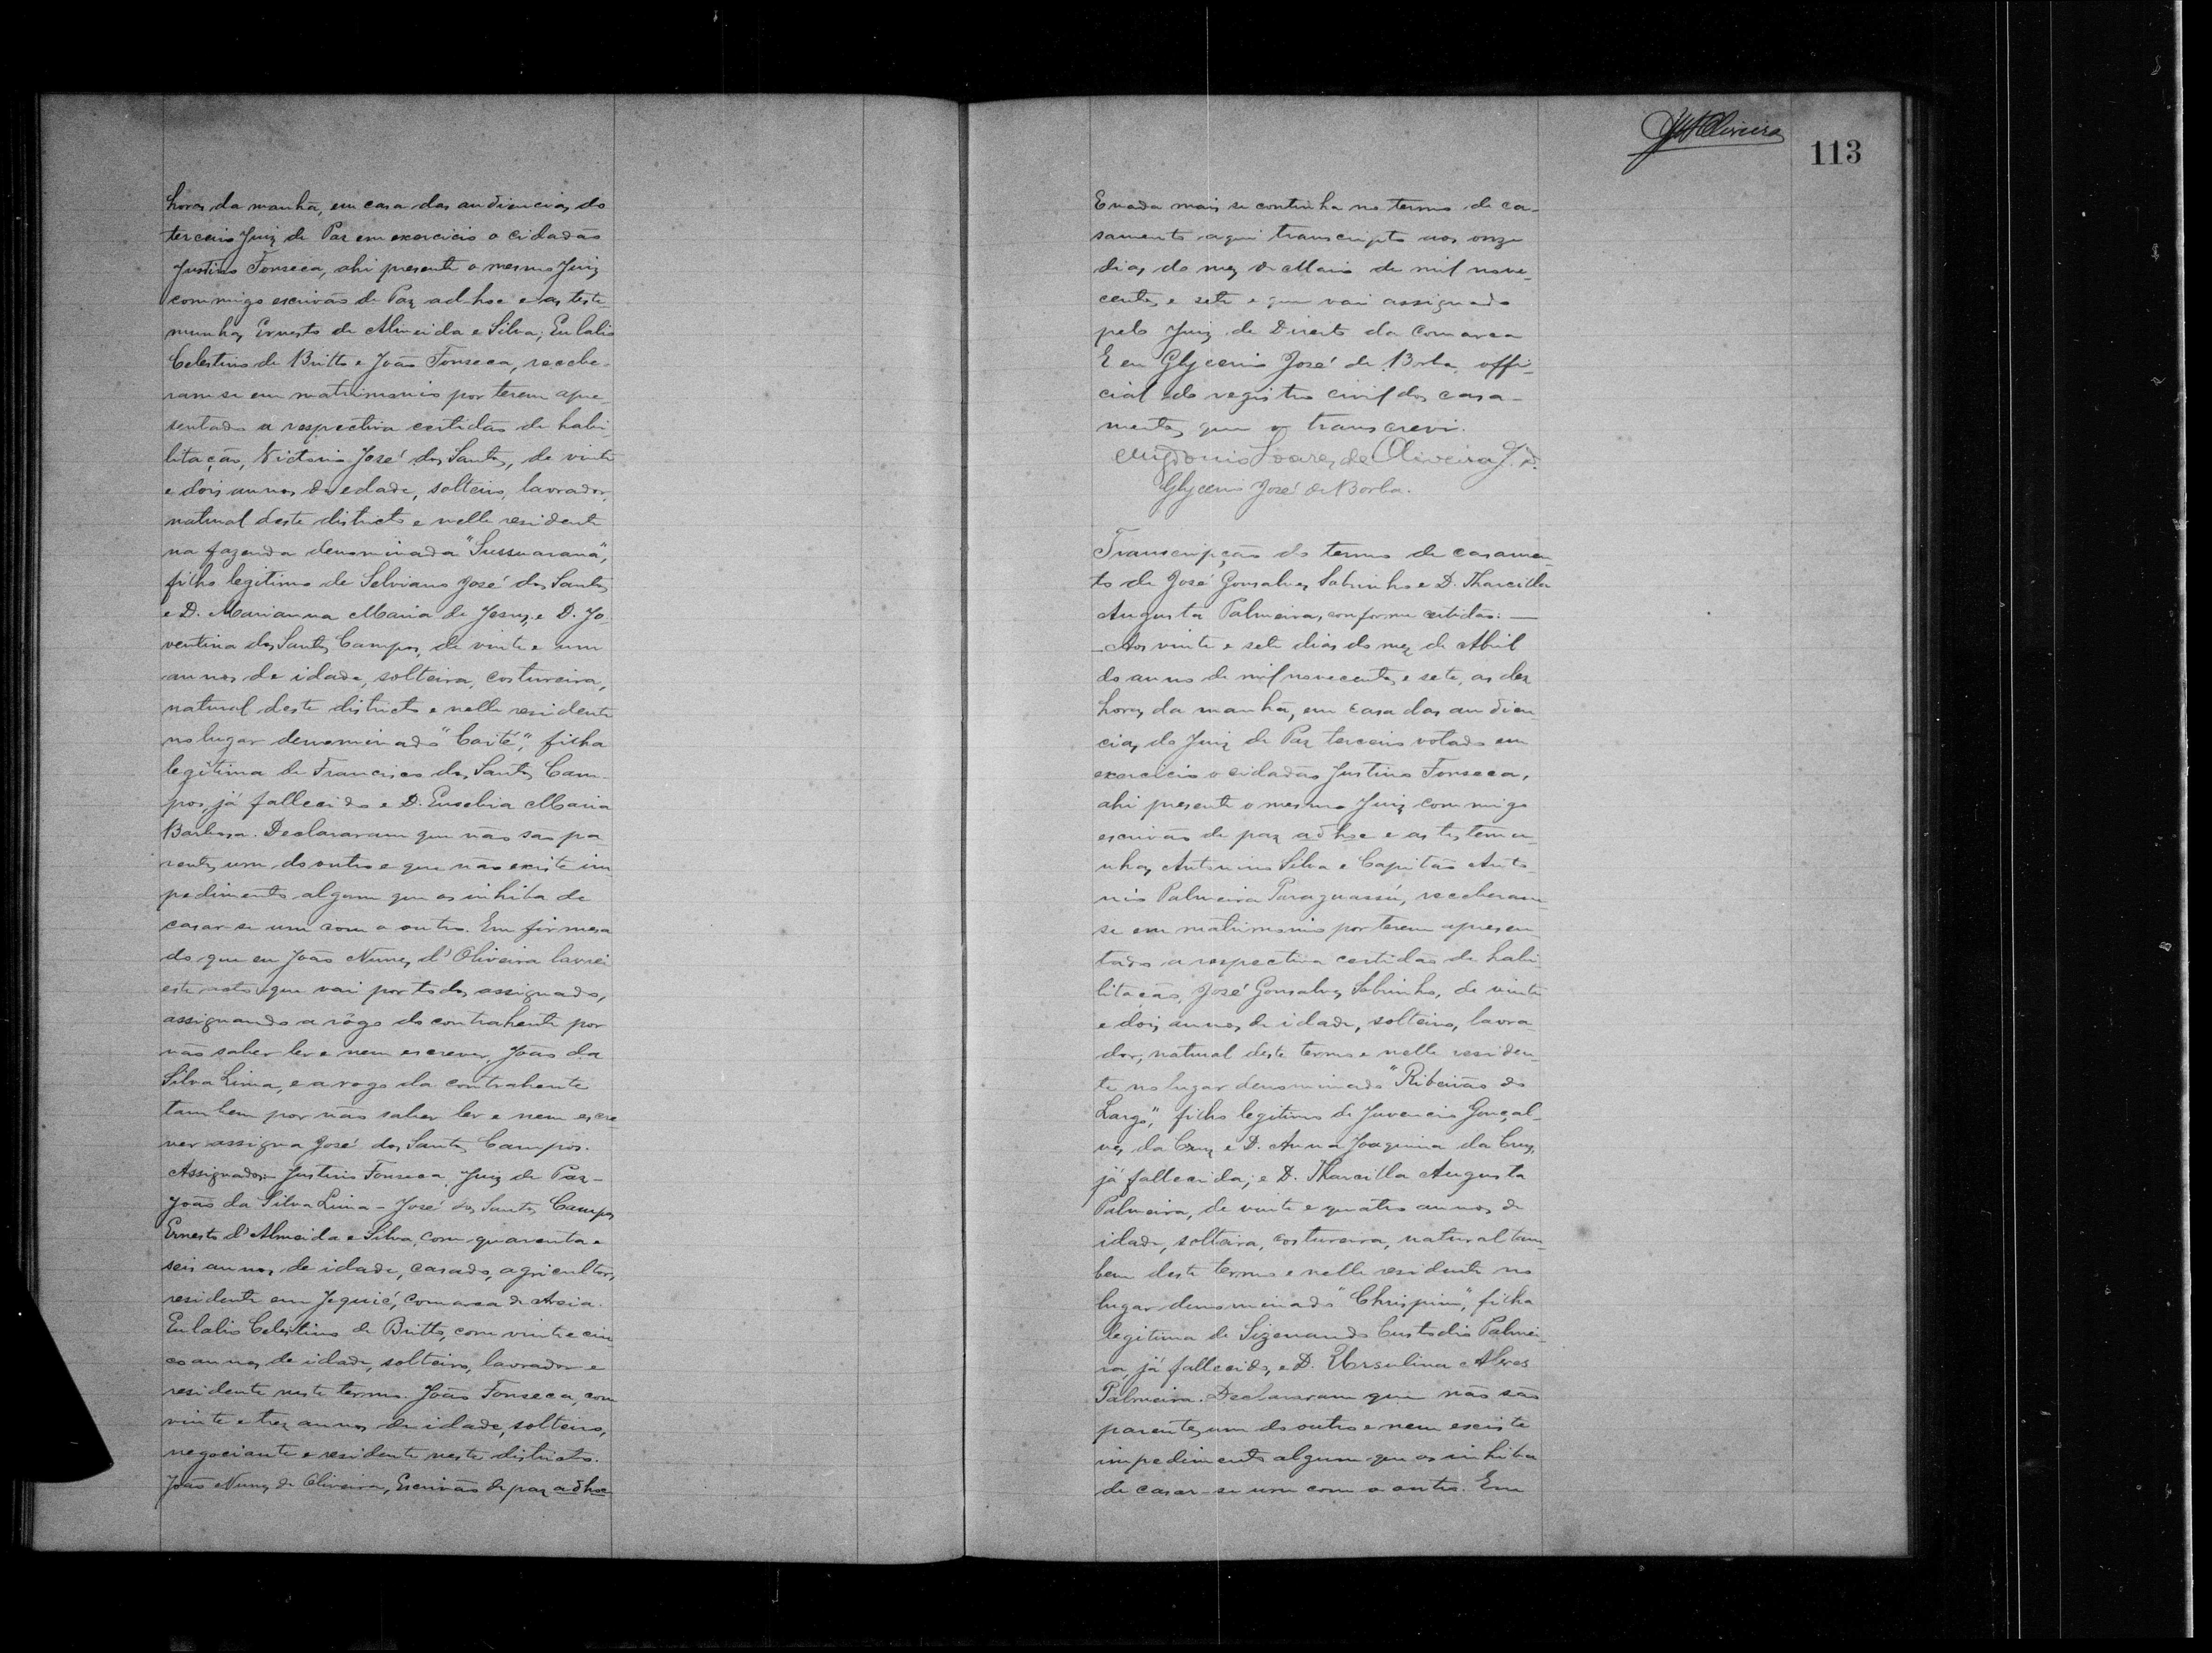 horas da manhã, em casa das audiencias do
terceiro Juiz de Paz em exercicio o cidadão
Justino Fonseca, ahi presente o mesmo Juiz
commigo escrivão de Paz ad-hoc e as teste-
munhas Ernesto de Almeida e Silva, Eulalio
Celestino de Britto e João Fonseca, recebe-
ram se em matrimonio por terem apre-
sentado a respectiva certidão de habi-
litação, Victorio José dos Santos, de vinte
e dois annos de edade, solteiro, lavrador,
natural deste districto e nelle residente
na fazenda denominada "Sussuarana",
filho legitimo de Selviano José dos Santos
e D. Marianna Maria de Jesus, e D. Jo-
ventina dos Santos Campos, de vinte e um
annos de idade, solteira, costureira,
natural deste districto e nelle residente
no lugar denominado "Caité", filha
legitima de Francisco dos Santos Cam-
pos, já fallecido e D. Eusebia Maria
Barbosa. Declararam que não são pa-
rentes um do outro e que não existe im-
pedimento algum que os inhiba de
casar-se um com o outro. Em firmesa
do que eu João Nunes d'Oliveira lavrei
este acto que vai por todos assignado,
assignando a rôgo do contrahente por
não saber ler e nem escrever, João da
Silva Lima, e a rogo da contrahente
tambem por não saber ler e nem escre-
ver assigna José dos Santos Campos.
Assignados Justino Fonseca, Juiz de Paz -
João da Silva Lima - José dos Santos Campos
Ernesto d'Almeida e Silva, com quarenta e
seis annos de idade, casado, agricultor,
residente em Jequié, comarca de Areia.
Eulalio Celestino de Britto, com vinte e cin-
co annos de idade, solteiro, lavrador e
residente neste termo. João Fonseca, com
vinte e trez annos de idade, solteiro,
negociante e residente neste districto.
João Nunes de Oliveira, Escrivão de paz ad hoc
113
E nada mais se continha no termo de ca-
samento aqui transcripto aos onze
dias do mez de Maio de mil nove-
centos e sete e que vai assignado
pelo Juiz de Direito da Comarca
E eu Glycerio José de Borba, offi-
cial do registro civil dos casa-
mentos que o transcrevi.
Soares de Oliveira J. D.
Glycerio José de Borba.
Transcripção do termo de casamen-
to de José Gonsalves Sobrinho e D. Tharcilla
Augusta Palmeira, conforme certidão: —
— Aos vinte e sete dias do mez de Abril
do anno de mil novecentos e sete, as dez
horas da manhã, em casa das audien-
cias do Juiz de Paz terceiro votado em
exercicio o cidadão Justino Fonseca,
ahi presente o mesmo Juiz commigo
escrivão de paz ad hoc e as testemu-
nhas Antonino Silva e Capitão Anto-
nio Palmeira Paraguassú, receberam-
se em matrimonio por terem apresen-
tado a respectiva certidão de habi-
litação, José Gonsalves Sobrinho, de vinte
e dois annos de idade, solteiro, lavra-
dor, natural deste termo e nelle residen-
te no lugar denominado "Ribeirão do
Largo", filho legitimo de Juvencio Gonçal-
ves da Cruz e D. Anna Joaquina da Cruz,
já fallecida; e D. Tharcilla Augusta
Palmeira, de vinte e quatro annos de
idade, solteira, costureira, natural tam-
bem deste termo e nelle residente no
lugar denominado "Chrispim", filha
legitima de Sizenando Custodio Palmei-
ra, já fallecido, e D. Ursulina Alves
Palmeira. Declararam que não são
parentes um do outro e nem existe
impedimento algum que os inhiba
de casar-se um com o outro. Em